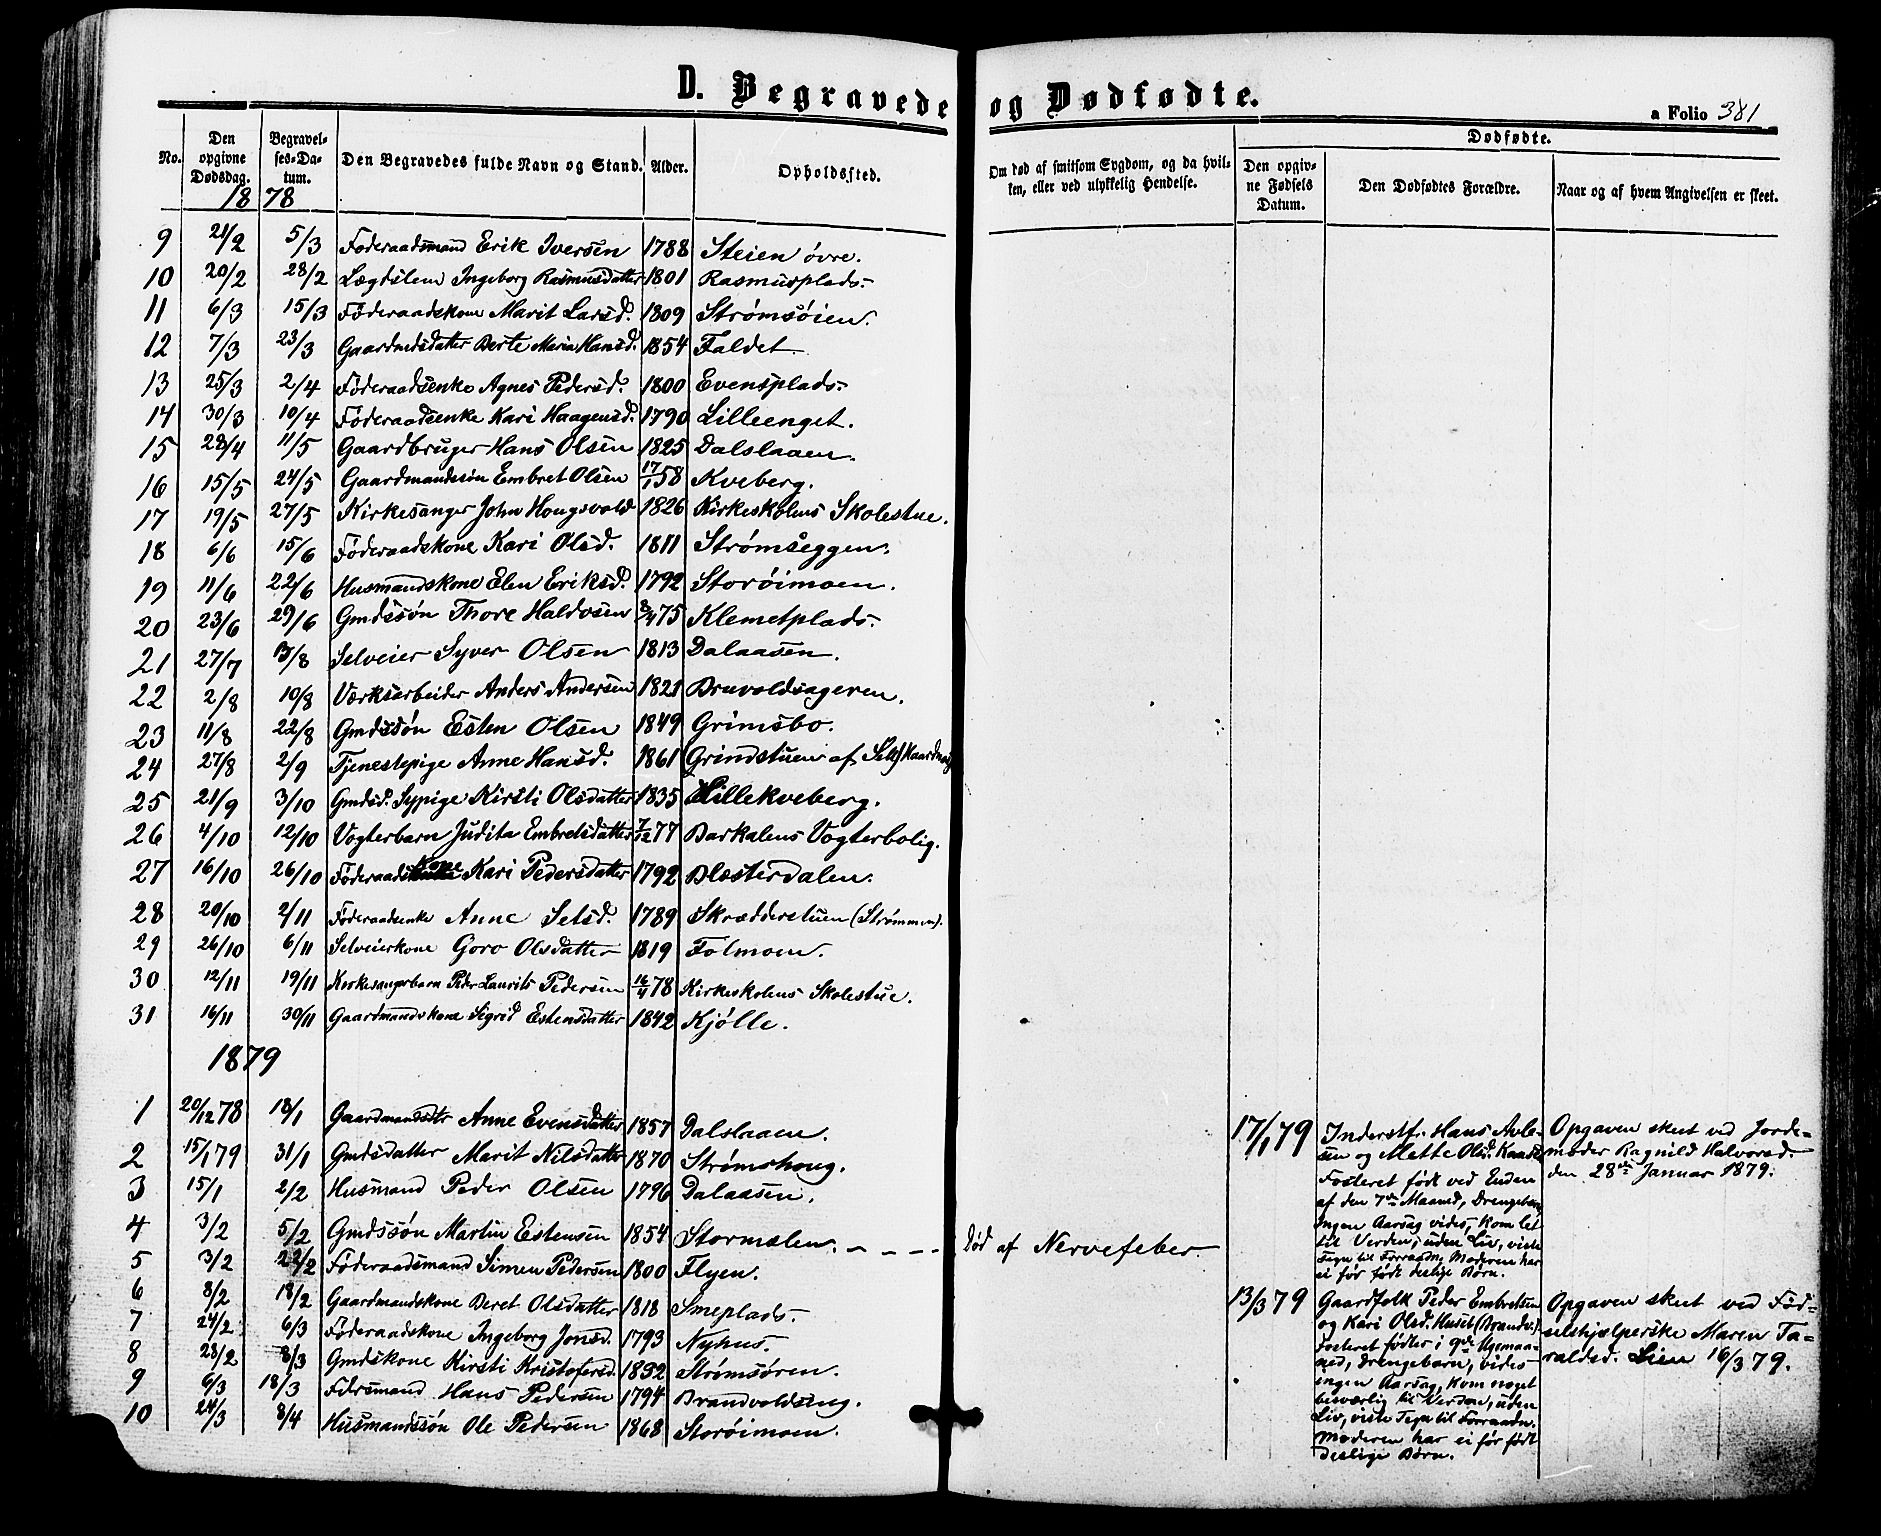 D. Begravede og Dødfødte.
a Folio 381
No.
Den opgivne Dødsdag.
Begravelses-Datum.
Den Begravedes fulde Navn og Stand.
Alder.
Opholdssted.
Om død af smitsom Sygdom, og da hvilken, eller ved ulykkelig Hendelse.
Dødfødte.
Den opgivne Fødsels Datum.
Den Dødfødtes Forældre.
Naar og af hvem Angivelsen er skeet.
1878
9 21/2 5/3 Føderaadsmand Erik Iversen 1788 Steien øvre.
10 20/2 28/2 Lægdslem Ingeborg Rasmusdatter 1801 Rasmusplads.
11 6/3 15/3 Føderaadskone Marit Larsd. 1809 Strømsøien.
12 7/3 23/3 Gaardmdsdatter Berte Maria Hansd. 1854 Faldet.
13 25/3 2/4 Føderaadsenke Agnes Pedersd. 1800 Evensplads
14 30/3 10/4 Føderaadsenke Kari Haagensd. 1790 Lilleenget.
15 28/4 11/5 Gaardbruger Hans Olsen 1825 Dalslaaen.
16 15/5 24/5 Gaardmandssøn Embret Olsen 17/1 58 Kveberg.
17 19/5 27/5 Kirkesanger John Hougsvold 1826 Kirkeskolens Skolestue.
18 6/6 15/6 Føderaadskone Kari Olsd. 1811 Strømseggen.
19 11/6 22/6 Husmandskone Elen Eriksd. 1792 Storøimoen.
20 23/6 29/6 Gmdssøn Thore Haldosen 75 Klemetplads.
21 27/7 /8 Selveier Syver Olsen 1813 Dalaasen.
22 2/8 10/8 Værksarbeider Anders Andersen 1821 Bruvoldsageren.
23 11/8 22/8 Gmdssøn Esten Olsen 1849 Grimsbo.
24 27/8 2/9 Tjenestepige Anne Hansd. 1861 Grindstuen af
25 21/9 3/10 Gmdsd. Sypige Kirsti Olsdatter 1835 Lillekveberg.
26 4/10 12/10 Vogterbarn Judita Embretsdatter 7/12 77 Barkalens Vogterbolig.
27 16/10 26/10 Føderaadskone Kari Pedersdatter 1792 Blæsterdalen.
28 20/10 2/11 Føderaadsenke Anne Selsd. 1789 Skrædderstuen (Strømmen).
29 26/10 6/11 Selveierkone Goro Olsdatter 1819 Folmoen.
30 12/11 19/11 Kirkesangerbarn Peder Laurits Pedersen 16/4 78 Kirkeskolens Skolestue.
31 16/11 30/11 Gaardmandskone Sigrid Estensdatter 1842 Kjølle.
1879
1 20/12 78 18/1 Gaardmandsdtr Anne Evensdatter 1857 Dalslaaen.
2 15/1 79 31/1 Gmdsdatter Marit Nilsdatter 1870 Strømshoug.
3 15/1 2/2 Husmand Peder Olsen 1796 Dalaasen.
4 3/2 5/2 Gmdssøn Martin Estensen 1854 Stormoen. - - - - Død af Nervefeber
5 3/2 22/2 Føderaadsmand Simen Pedersen 1800 Flyen.
6 8/2 18/2 Gaardmandskone Beret Olsdatter 1818 Smeplads.
7 24/2 6/3 Føderaadskone Ingeborg Jonsd. 1793 Nyhus.
8 28/2 8/3 Gmdskone Kirsti Kristofersd. 1832 Strømsøren.
9 6/3 18/3 Fdrsmand Hans Pedersen 1794 Brandvoldseng.
10 24/3 8/4 Husmandssøn Ole Pedersen 1868 Storøimoen.
17/1 79
Inderstf. Hans Avle-
sen og Mette Olsd.
Fosteret født ved Enden
af den 7de Maaned, Drengebarn
Ingen Aarsag vides, kom let
til Verden, uden Liv, viste
Tegn til Forraadn. Moderen har
ei før født deslige Børn.
Opgaven skeet ved Jorde-
moder Ragnild Halvorsd
den 28de Januar 1879.
13/3 79
Gaardfolk Peder Embretsen
og Kari Olsd. Huset (Brandv.)
Fosteret fødtes i 9de Ugemaa-
ned, Drengebarn, vides
ingen Aarsag, kom noget
besværlig til Verden, uden
Liv, viste Tegn til Forraadn.
Moderen har ei før født
deslige Børn.
Opgaven skeet ved Fød-
selshjælperske Maren Ta-
raldsd. Lien 16/3 79.